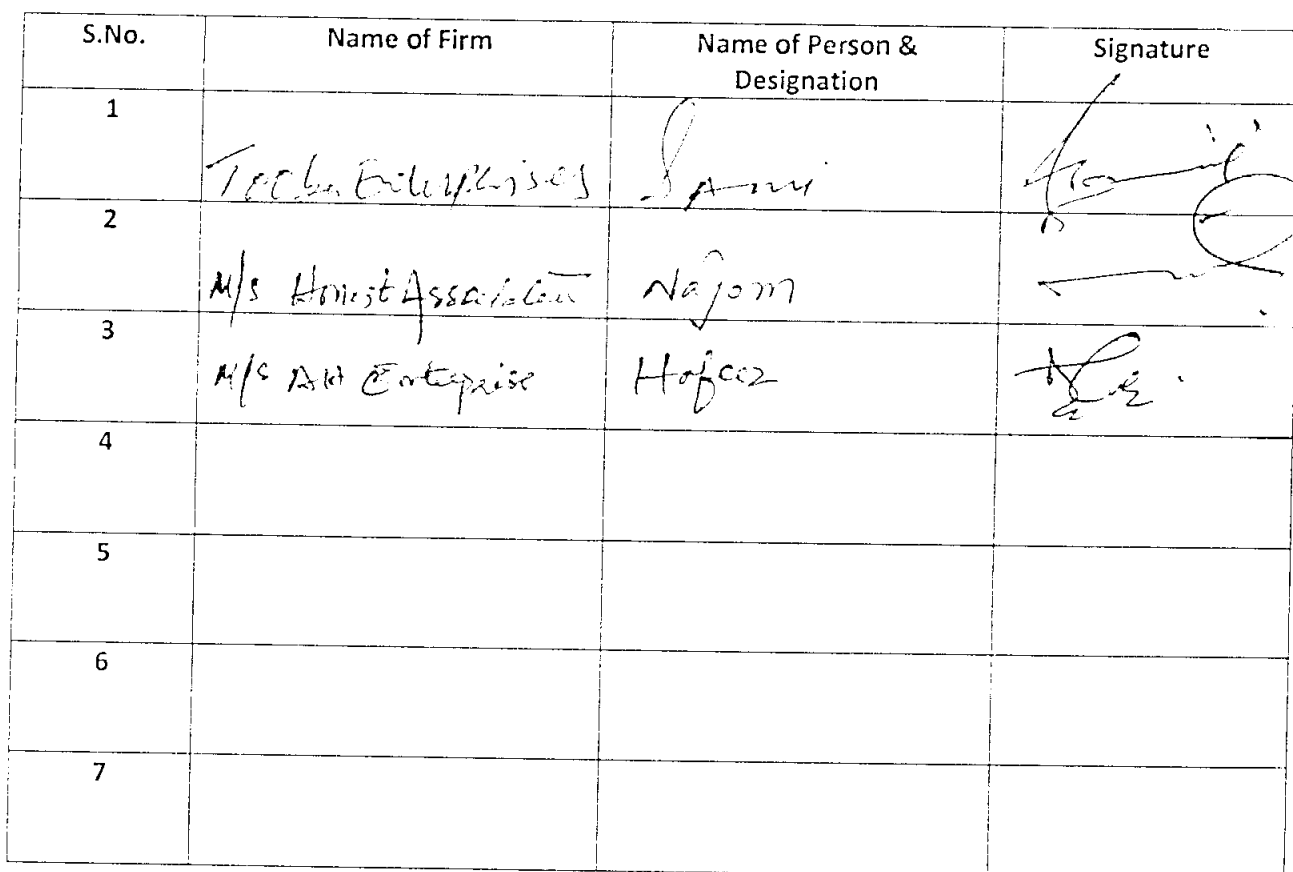 S.No. Name of Firm Name of Person & Designation Signature
1 Enterprises Sami
2 M/s Honest Najom
3 M/s AH Enterprise Hafeez
4
5
6
7